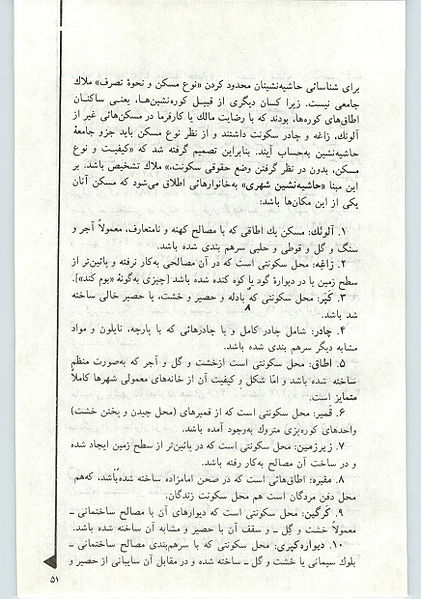 برای شناسائی حاشیه‌نشینان محدود کردن «نوع مسکن و نحوهٔ تصرف» ملاك
جامعی نیست. زیرا کسان دیگری از قبیل کوره‌نشین‌ها، یعنی ساکنان
اطاق‌های کوره‌ها، بودند که با رضایت مالك یا کارفرما در مسکن‌هائی غیر از
آلونك، زاغه و چادر سکونت داشتند و از نظر نوع مسکن باید جزو جامعهٔ
حاشیه‌نشین به‌حساب آیند. بنابراین تصمیم گرفته شد که «کیفیت و نوع
مسکن، بدون در نظر گرفتن وضع حقوقی سکونت،» ملاك تشخیص باشد. بر
این مبنا «حاشیه‌نشین شهری» به‌خانوارهائی اطلاق می‌شود که مسکن آنان
یکی از این مکان‌ها باشد:
۱. آلونك: مسکن یك اطاقی که با مصالح کهنه و نامتعارف، معمولاً آجر و
سنگ و گل و قوطی و حلبی سرهم بندی شده باشد.
۲. زاغه: محل سکونتی است که در آن مصالحی به‌کار نرفته و پائین‌تر از
سطح زمین یا در دیوارهٔ گود یا کوه کنده شده باشد [چیزی به‌گونهٔ «بوم کند»].
۳. کپر: محل سکونتی که با دله و حصیر و خشت، یا حصیر خالی ساخته
شد باشد.
۴. چادر: شامل چادر کامل و یا چادرهائی که با پارچه، نایلون و مواد
مشابه دیگر سرهم بندی شده باشد.
۵. اطاق: محل سکونتی است ازخشت و گل و آجر که به‌صورت منظم
ساخته شده باشد و امّا شکل و کیفیت آن از خانه‌های معمولی شهرها کاملاً
متمایز است.
۶. قمیر: محل سکونتی است که از قمیرهای (محل چیدن و پختن خشت)
واحدهای کوره‌پزی متروك به‌وجود آمده باشد.
۷. زیرزمین: محل سکونتی است که در پائین‌تر از سطح زمین ایجاد شده
و در ساخت آن مصالح به‌کار رفته باشد.
۸. مقبره: اطاق‌هائی است که در صحن امامزاده ساخته شده‌باشد، که‌هم
محل دفن مردگان است هم محل سکونت زندگان.
۹. کرگین: محل سکونتی است که دیوارهای آن با مصالح ساختمانی ـ
معمولاً خشت و گِل ـ و سقف آن با حصیر و مشابه آن ساخته شده باشد.
۱۰. دیواره‌کپری: محل سکونتی که با سرهم‌بندی مصالح ساختمانی ـ
بلوك سیمانی یا خشت و گل ـ ساخته شده و در مقابل آن سایبانی از حصیر و
۵۱